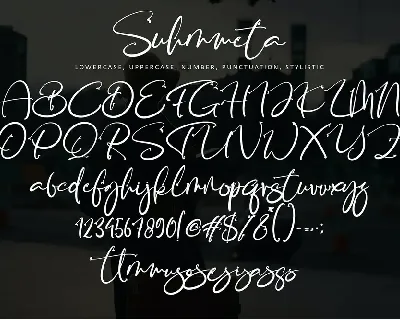 Suhmmeta
LOWERCASE, UPPERCASE, NUMBER, PUNCTUATION, STYLISTIC
ABCDEFGHIJKLMN
OPQRSTUVWXYZ
abcdefghijklmnopqrstuvwxyz
1234567890!@#$%&()-=.,:;